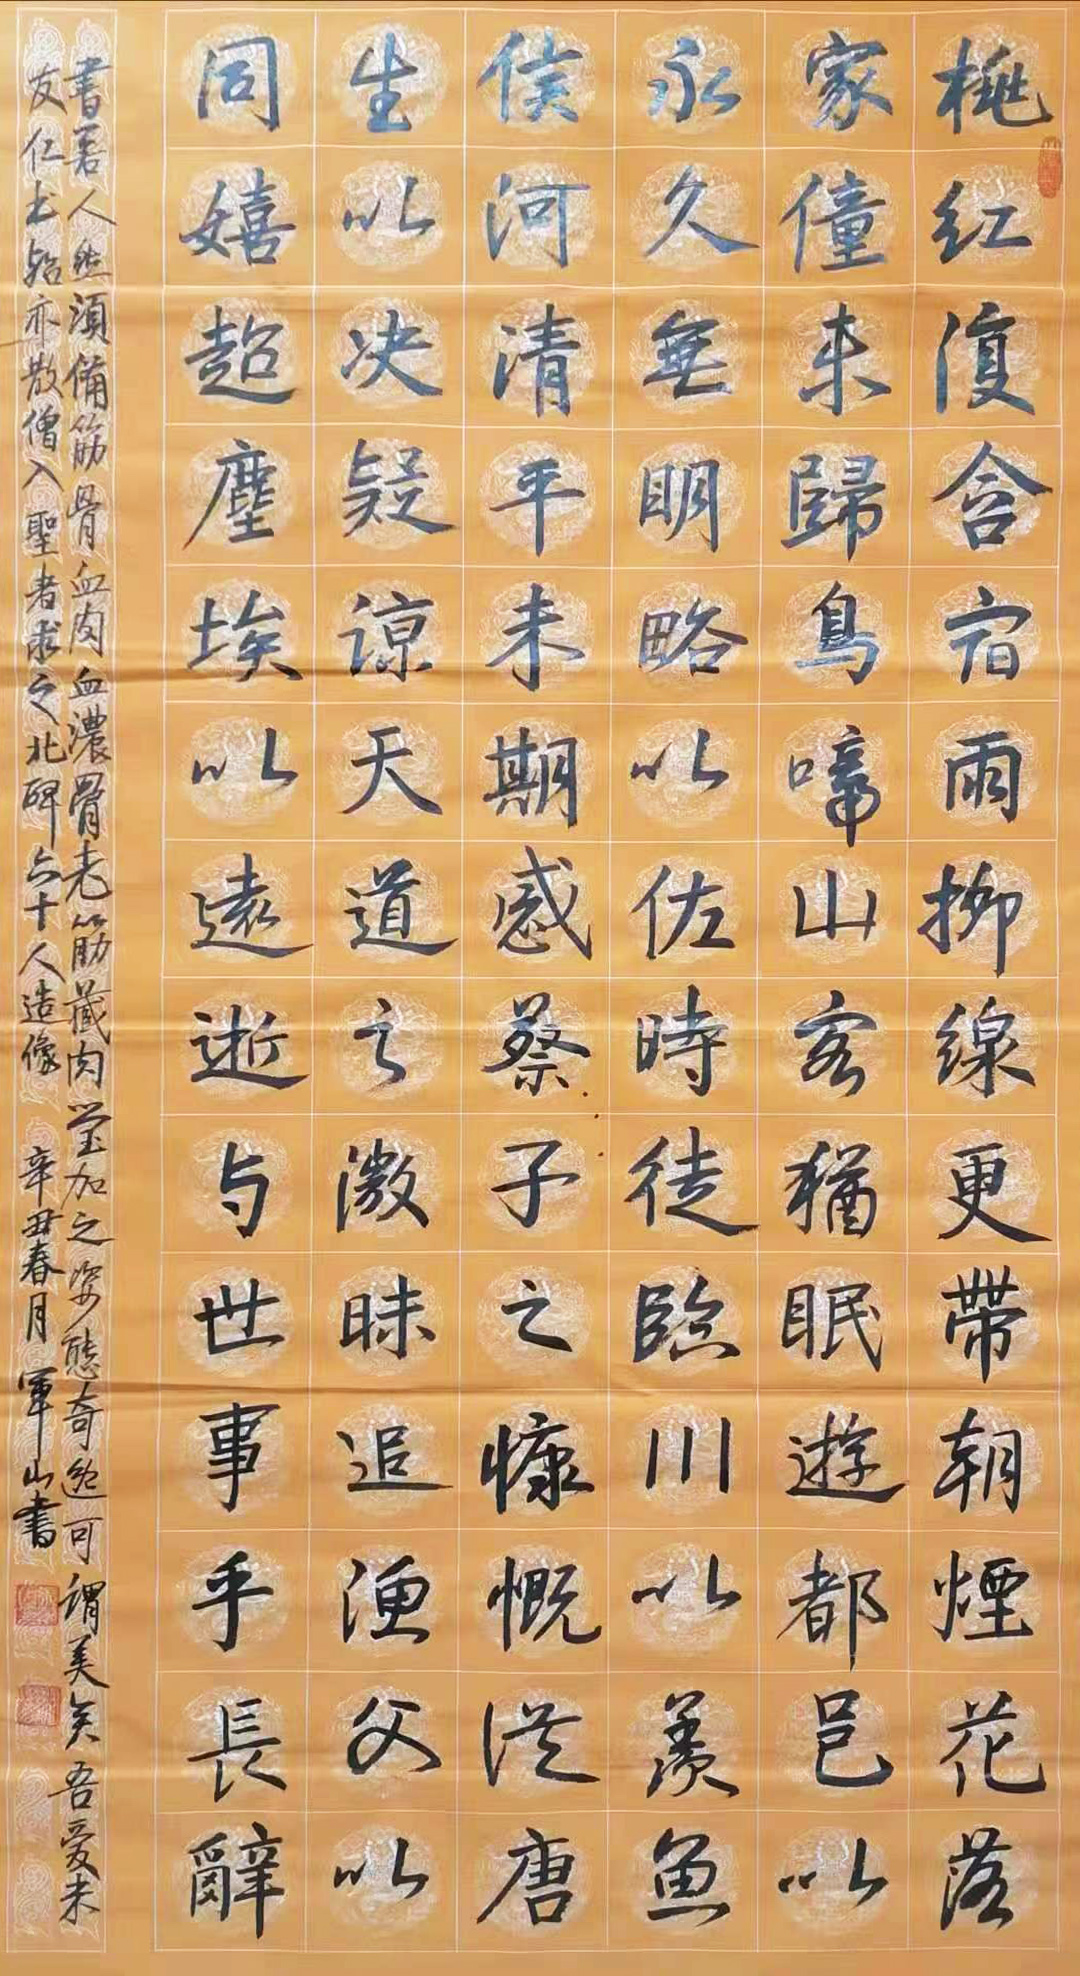 桃红復含宿雨柳線更帶朝煙花落
家僮未歸鳥啼山客猶眠遊都邑以
永久無明略以佐時徒臨川以羨魚
俟河清乎未期感蔡子之慷慨從唐
生以决疑諒天道之微昧追漁父以
同嬉超塵埃以遠逝与世事乎長辭
書若人然須備筋骨血肉血濃骨老筋藏肉瑩加之姿態奇逸可謂美矣吾愛未
友仁書銘亦散僧入聖者求之北碑六十人造像 辛丑春月 軍山書